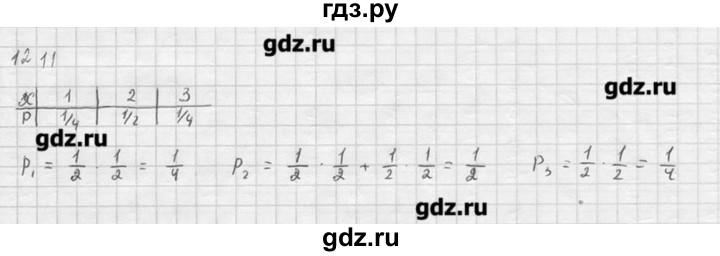 гдз.ру
gdz.ru
12 11
gdz.ru
x 1 2 3
P 1/4 1/2 1/4
gdz.ru
P₁ = 1/2 · 1/2 = 1/4 P₂ = 1/2 · 1/2 + 1/2 · 1/2 = 1/2 P₃ = 1/2 · 1/2 = 1/4
gdz.ru
gdz.ru